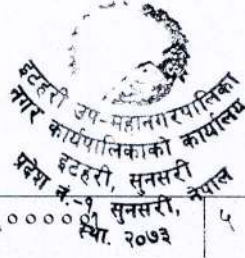 इटहरी उप-महानगरपालिका
नगर कार्यपालिकाको कार्यालय
इटहरी, सुनसरी
प्रदेश नं.-१ सुनसरी, नेपाल
स्था. २०७३
५